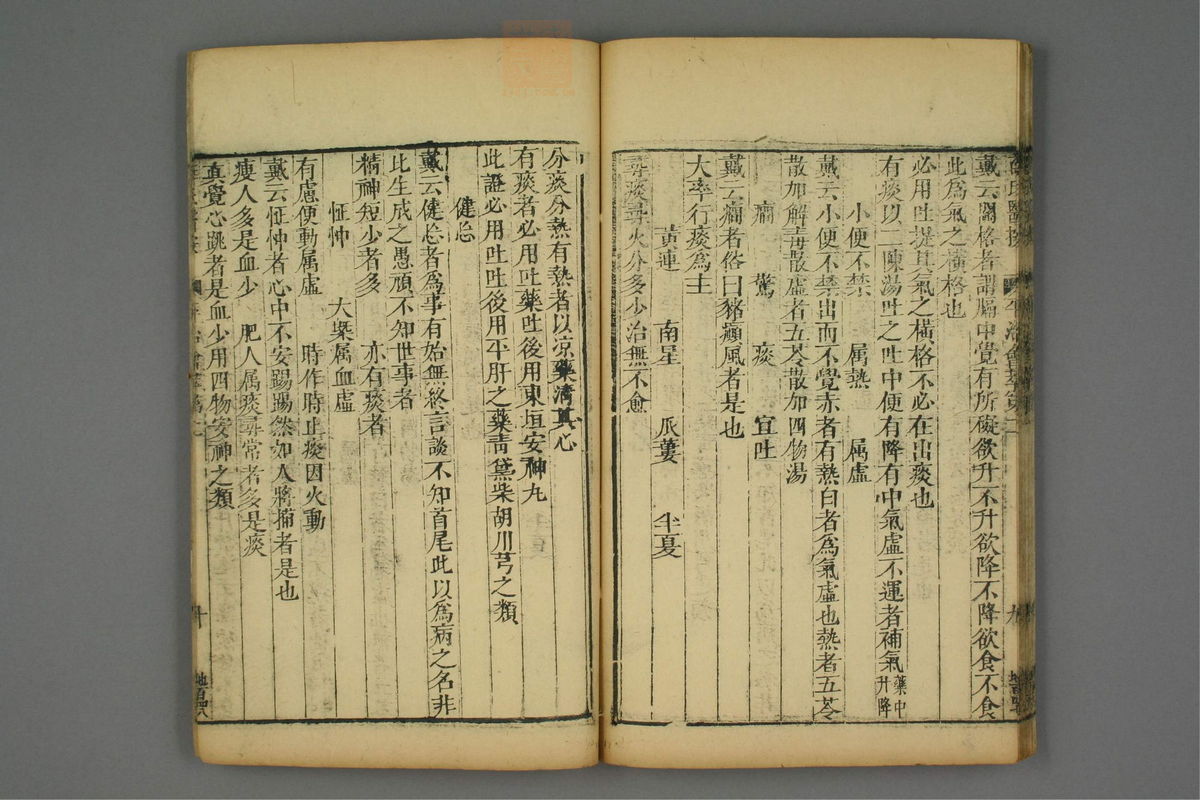 戴云關格者謂膈中覺有所礙欲升不升欲降不降欲食不食
此為氣之橫格也
必用吐提其氣之橫格不必在出痰也
有痰以二陳湯吐之吐中便有降有中氣虛不運者補氣藥中升降
小便不禁　属熱　属虛
戴云小便不禁出而不覺赤者有熱白者為氣虛也熱者五苓
散加解毒散虛者五苓散加四物湯
癇　驚　痰　宜吐
戴云癇者俗曰豬癲風者是也
大率行痰為主
黃連　南星　瓜蔞　半夏
尋痰尋火分多少治無不愈
分痰分熱有熱者以凉藥清其心
有痰者必用吐藥吐後用東垣安神丸
此證必用吐吐後用平肝之藥青黛柴胡川芎之類
健忘
戴云健忘者為事有始無終言談不知首尾此以為病之名非
比生成之愚頑不知世事者
精神短少者多　亦有痰者
怔忡　大槩属血虛
有慮便動属虛　時作時止痰因火動
戴云怔忡者心中不安惕惕然如人將捕者是也
瘦人多是血少　肥人属痰尋常者多是痰
真覺心跳者是血少用四物安神之類
十